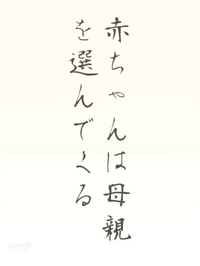 赤ちゃんは母親
を選んでくる